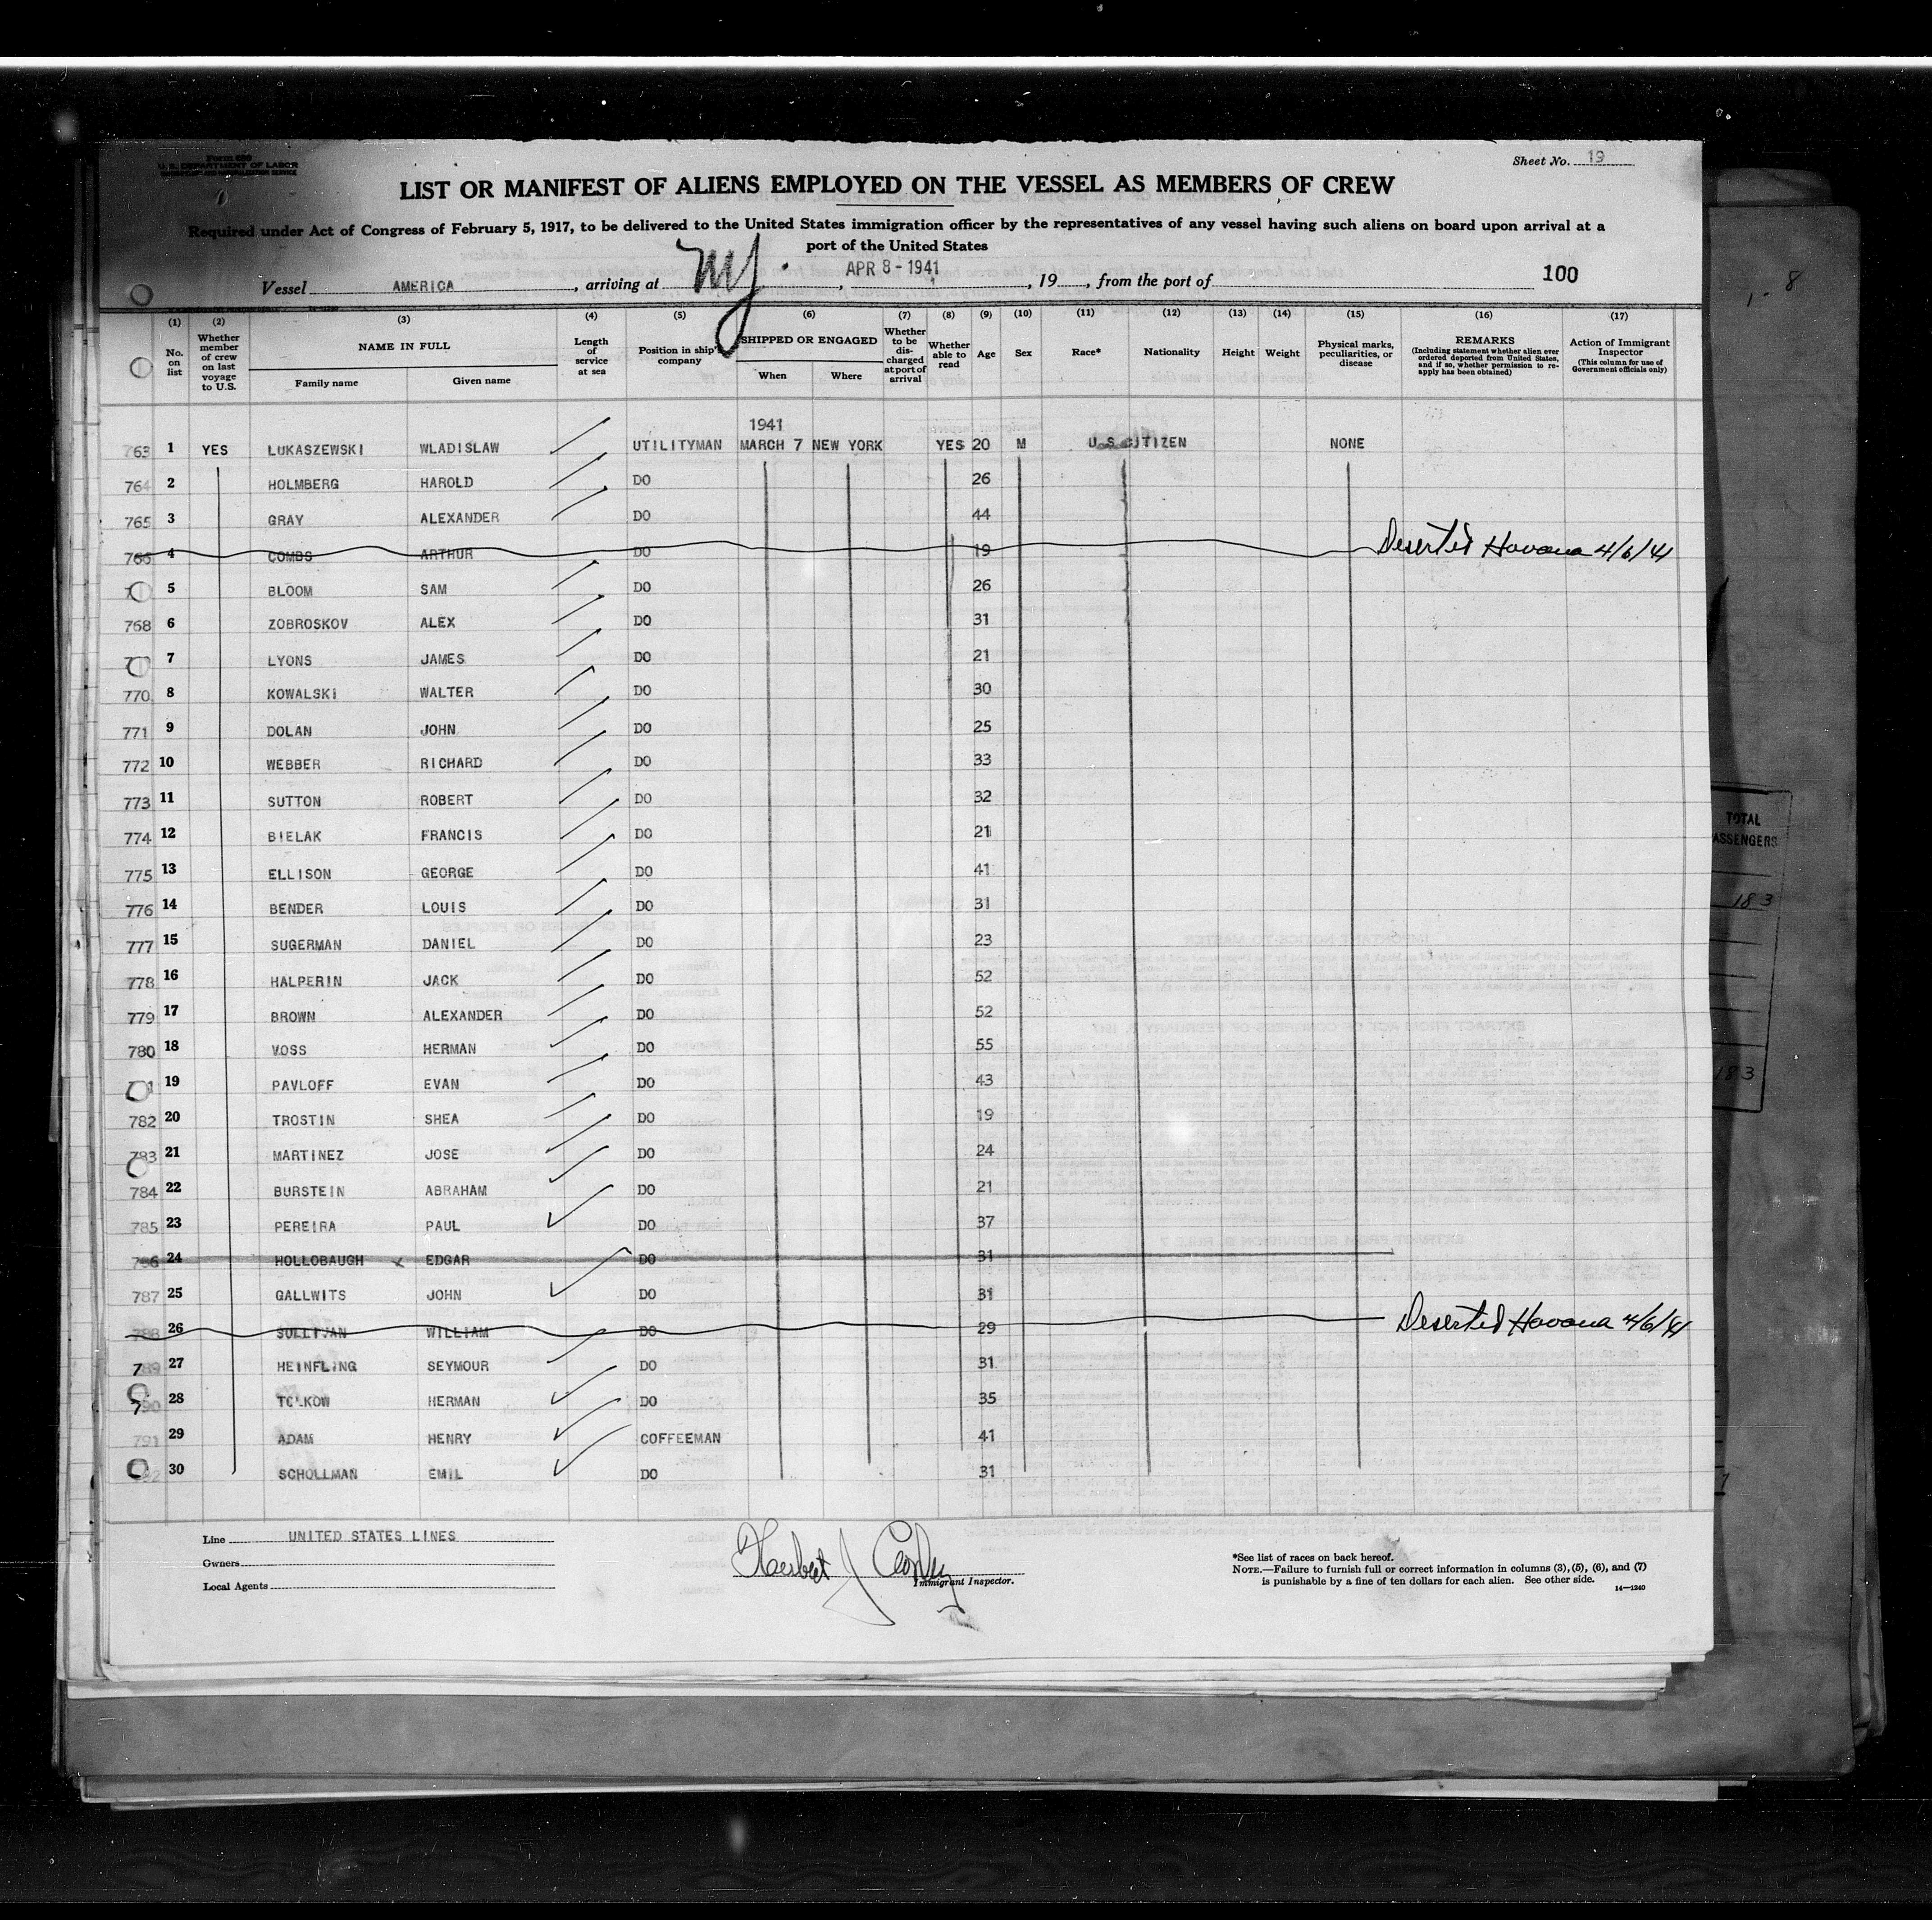 Form 680
U.S. DEPARTMENT OF LABOR
Sheet No. 19
LIST OR MANIFEST OF ALIENS EMPLOYED ON THE VESSEL AS MEMBERS OF CREW
Required under Act of Congress of February 5, 1917, to be delivered to the United States immigration officer by the representatives of any vessel having such aliens on board upon arrival at a
port of the United States
Vessel AMERICA, arriving at NY., APR 8 - 1941, 19, from the port of 100
(1) (2) (3) (4) (5) (6) (7) (8) (9) (10) (11) (12) (13) (14) (15) (16) (17)
No. on list
Whether member of crew on last voyage to U.S.
NAME IN FULL
Family name Given name
Length of service at sea
Position in ship's company
SHIPPED OR ENGAGED
When Where
Whether to be discharged at port of arrival
Whether able to read
Age Sex Race* Nationality Height Weight
Physical marks, peculiarities, or disease
REMARKS
(Including statement whether alien ever ordered deported from United States, and if so, whether permission to reapply has been obtained)
Action of Immigrant Inspector
(This column for use of Government officials only)
1941
763 1 YES LUKASZEWSKI WLADISLAW UTILITYMAN MARCH 7 NEW YORK YES 20 M U S CITIZEN NONE
764 2 HOLMBERG HAROLD DO 26
765 3 GRAY ALEXANDER DO 44
766 4 COMBS ARTHUR DO 19 Deserted Havana 4/6/41
5 BLOOM SAM DO 26
768 6 ZOBROSKOV ALEX DO 31
7 LYONS JAMES DO 21
770 8 KOWALSKI WALTER DO 30
771 9 DOLAN JOHN DO 25
772 10 WEBBER RICHARD DO 33
773 11 SUTTON ROBERT DO 32
774 12 BIELAK FRANCIS DO 21
775 13 ELLISON GEORGE DO 41
776 14 BENDER LOUIS DO 31
777 15 SUGERMAN DANIEL DO 23
778 16 HALPERIN JACK DO 52
779 17 BROWN ALEXANDER DO 52
780 18 VOSS HERMAN DO 55
19 PAVLOFF EVAN DO 43
782 20 TROSTIN SHEA DO 19
783 21 MARTINEZ JOSE DO 24
784 22 BURSTEIN ABRAHAM DO 21
785 23 PEREIRA PAUL DO 37
786 24 HOLLOBAUGH EDGAR DO 31
787 25 GALLWITS JOHN DO 31
788 26 SULLIVAN WILLIAM DO 29 Deserted Havana 4/6/41
789 27 HEINFLING SEYMOUR DO 31
790 28 TOLKOW HERMAN DO 35
791 29 ADAM HENRY COFFEEMAN 41
30 SCHOLLMAN EMIL DO 31
Line UNITED STATES LINES
Owners
Local Agents
Immigrant Inspector.
*See list of races on back hereof.
NOTE.—Failure to furnish full or correct information in columns (3), (5), (6), and (7)
is punishable by a fine of ten dollars for each alien. See other side.
14—1240
TOTAL
183
183